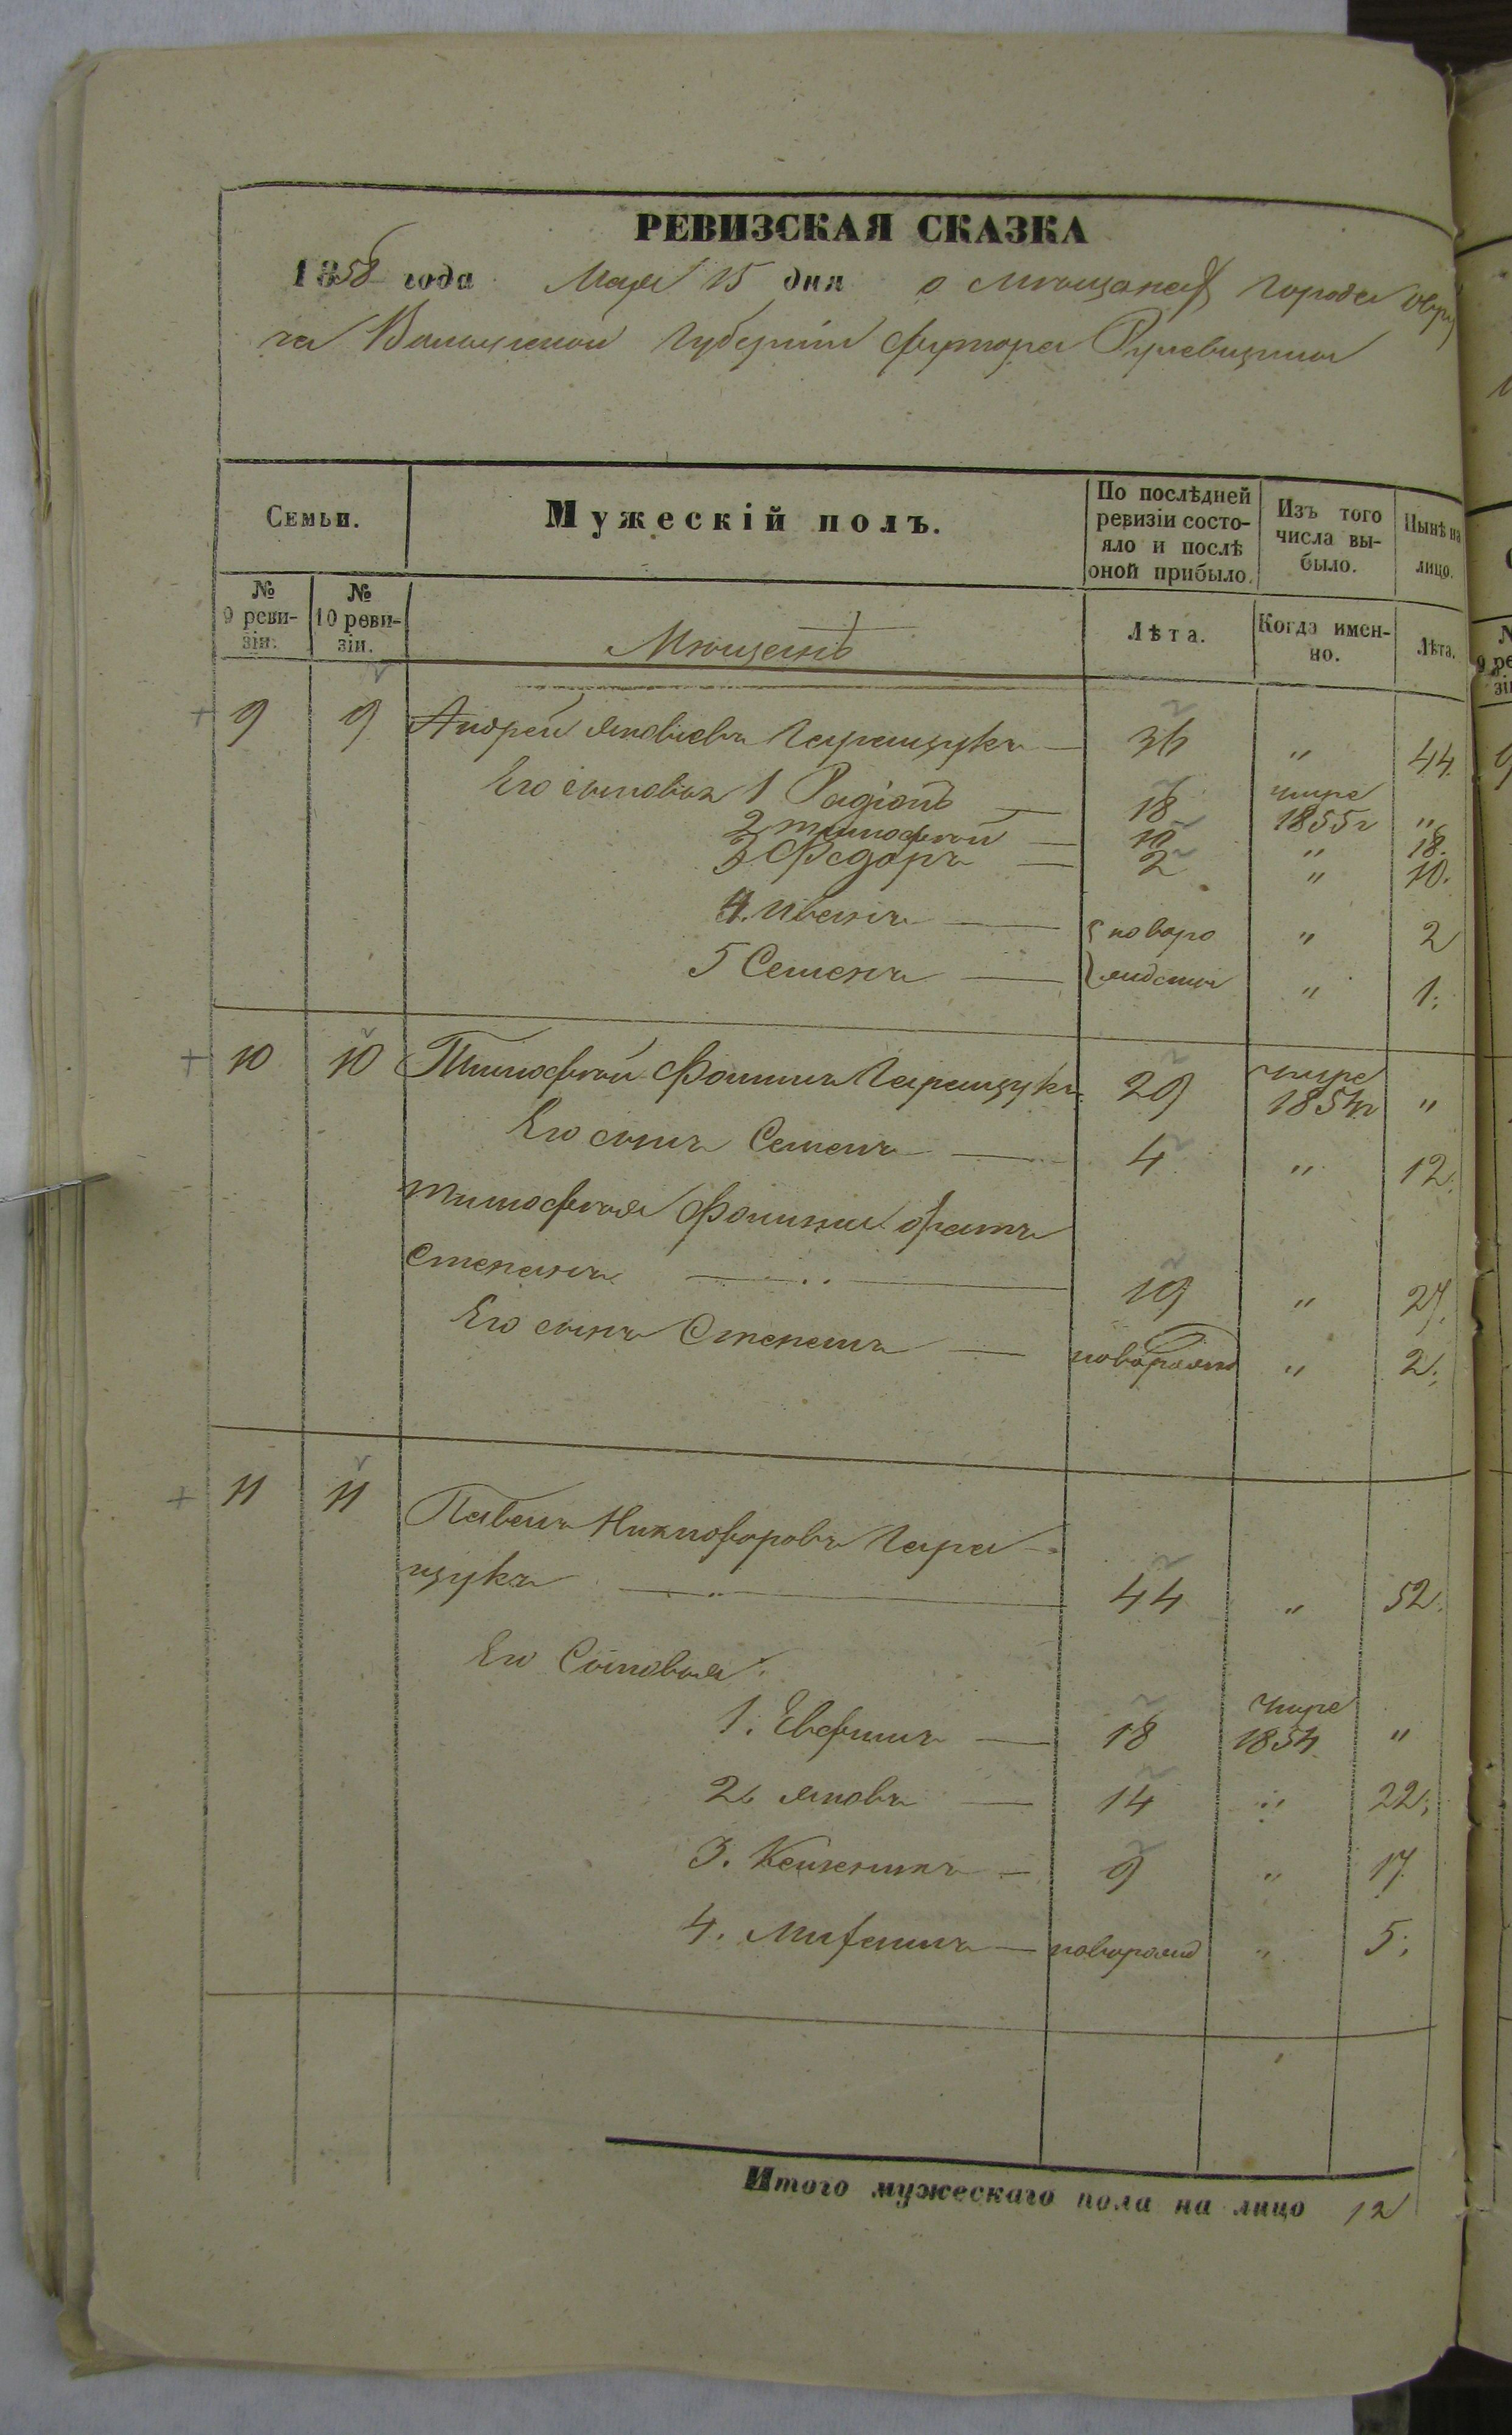 РЕВИЗСКАЯ СКАЗКА
1858 года Мая 15 дня о мѣщанахъ города Овру
ча Волынской Губерніи футора
Семьи.
Мужескій полъ.
По послѣдней ревизіи состо-
яло и послѣ
оной прибыло.
Изъ того
числа вы-
было.
Нынѣ на
лицо.
№
9 реви-
зіи.
№
10 реви-
зіи.
Мѣщанъ
Лѣта.
Когда имен-
но.
Лѣта.
9 9 Андрей Яковлевъ Геращукъ — 36 " 44.
Его сыновья 1 Радіонъ — 18 умре 1855г "
2 Тимофей — 10 " 18.
3 Федоръ — 2 " 10.
4. Иванъ — новоро " 2
5 Семенъ — жденны " 1.
10 10 Тимофей Фоминъ Геращукъ 29 умре 1854г "
Его сынъ Семенъ — 4 " 12.
Тимофея Фомина братъ
Степанъ — 19 " 27.
Его сынъ Степанъ — новорожд " 2.
11 11 Павелъ Никифоровъ Гера
щукъ — 44 " 52.
Его Сыновья.
1. Евфимъ — 18 умре 1854 "
2. Яковъ — 14 " 22.
3. — 9 " 17.
4. — новорожд " 5.
Итого мужескаго пола на лицо 12